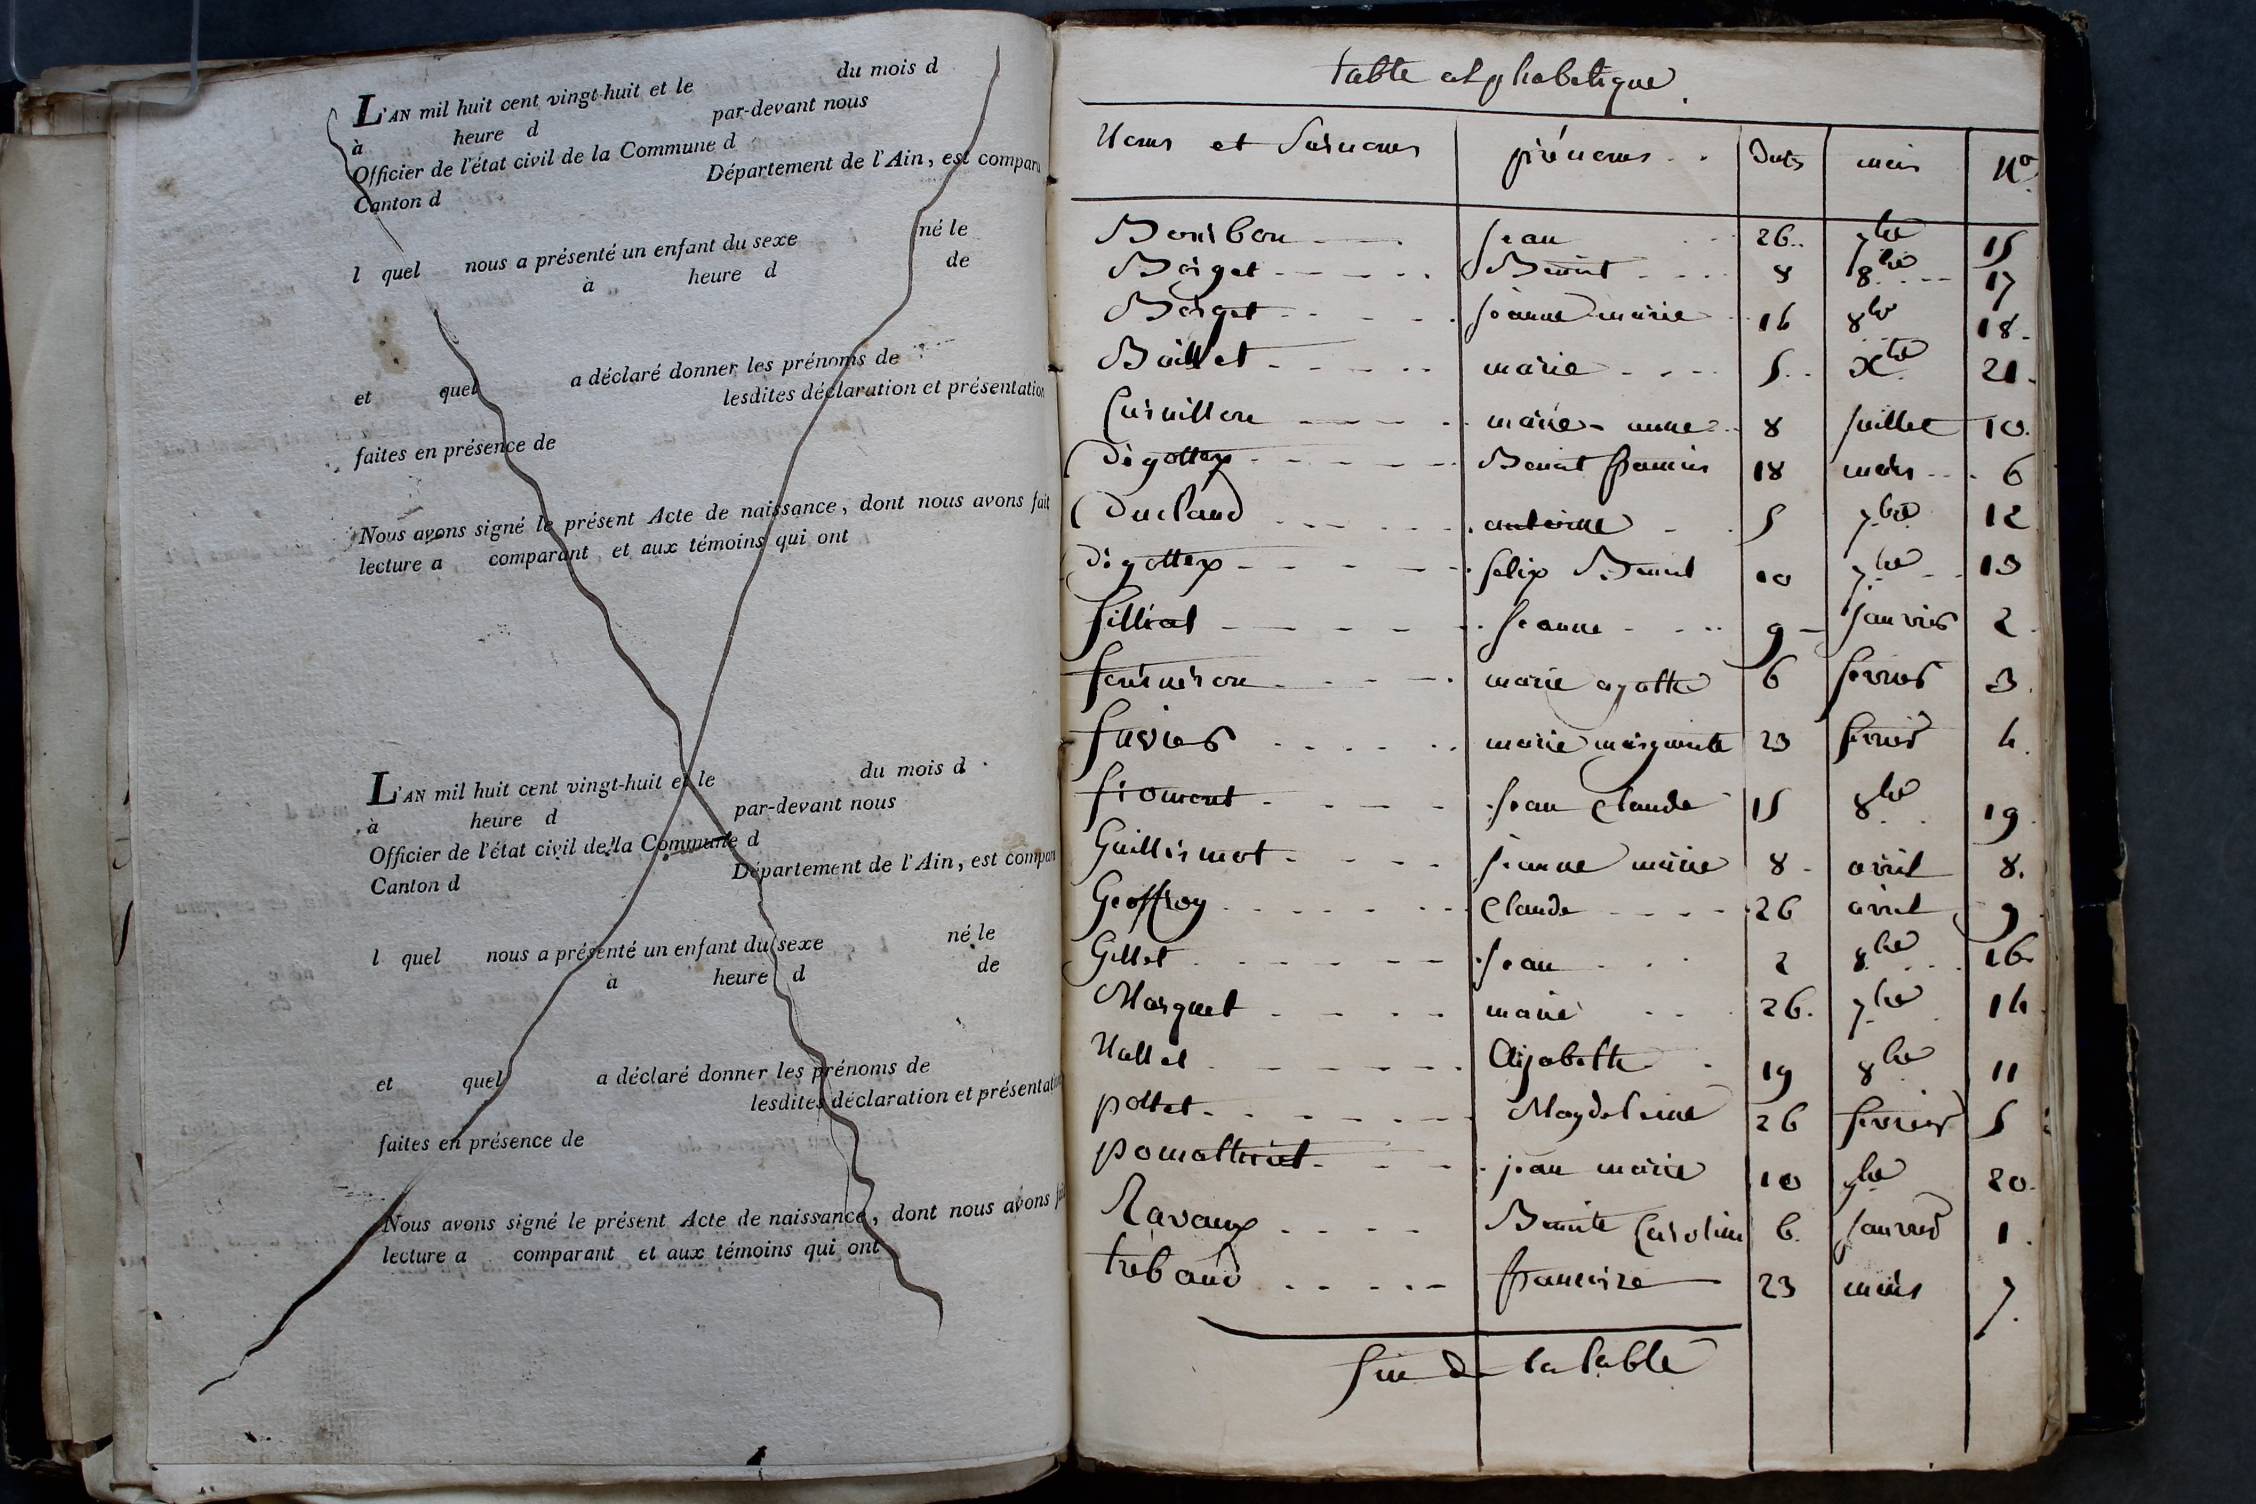 du mois d
L'AN mil huit cent vingt-huit et le
à heure d par-devant nous
Officier de l'état civil de la Commune d
Canton d Département de l'Ain, est comparu
l quel nous a présenté un enfant du sexe né le
à heure d de
et quel a déclaré donner les prénoms de
lesdites déclaration et présentation
faites en présence de
Nous avons signé le présent Acte de naissance, dont nous avons fait
lecture a comparant et aux témoins qui ont
L'AN mil huit cent vingt-huit et le du mois d
à heure d par-devant nous
Officier de l'état civil de la Commune d
Canton d Département de l'Ain, est comparu
l quel nous a présenté un enfant du sexe né le
à heure d de
et quel a déclaré donner les prénoms de
lesdites déclaration et présentation
faites en présence de
Nous avons signé le présent Acte de naissance, dont nous avons
lecture a comparant et aux témoins qui ont
table alphabetique.
Noms et Surnoms prénoms dates mois No
Bourbon jean 26 7bre 15
Berget Benoit 8 8bre 17
Berget jeanne marie 16 8bre 18
Buillet marie 5 Xbre 21
Curnillon marie anne 8 juillet 10
digottex Benoit francois 18 mars 6
Duclaud antoine 5 7bre 12
digottex felix Benoit 10 7bre 13
filliat jeanne 9 janvier 2
fournison marie agatte 6 fevrier 3
fuvier marie margueritte 23 fevrier 4
froment jean claude 15 8bre 19
Guillermot jeanne marie 8 avril 8
Geoffroy Claude 26 avril 9
Gillet jean 2 8bre 16
Marguet marie 26 7bre 14
Nallet Elizabette 19 8bre 11
pottet Magdeleine 26 fevrier 5
pomathiot jean marie 10 9bre 20
Ravaux Benoite Caroline 6 janvier 1
trebaud francoize 23 mars 7
fin de la table